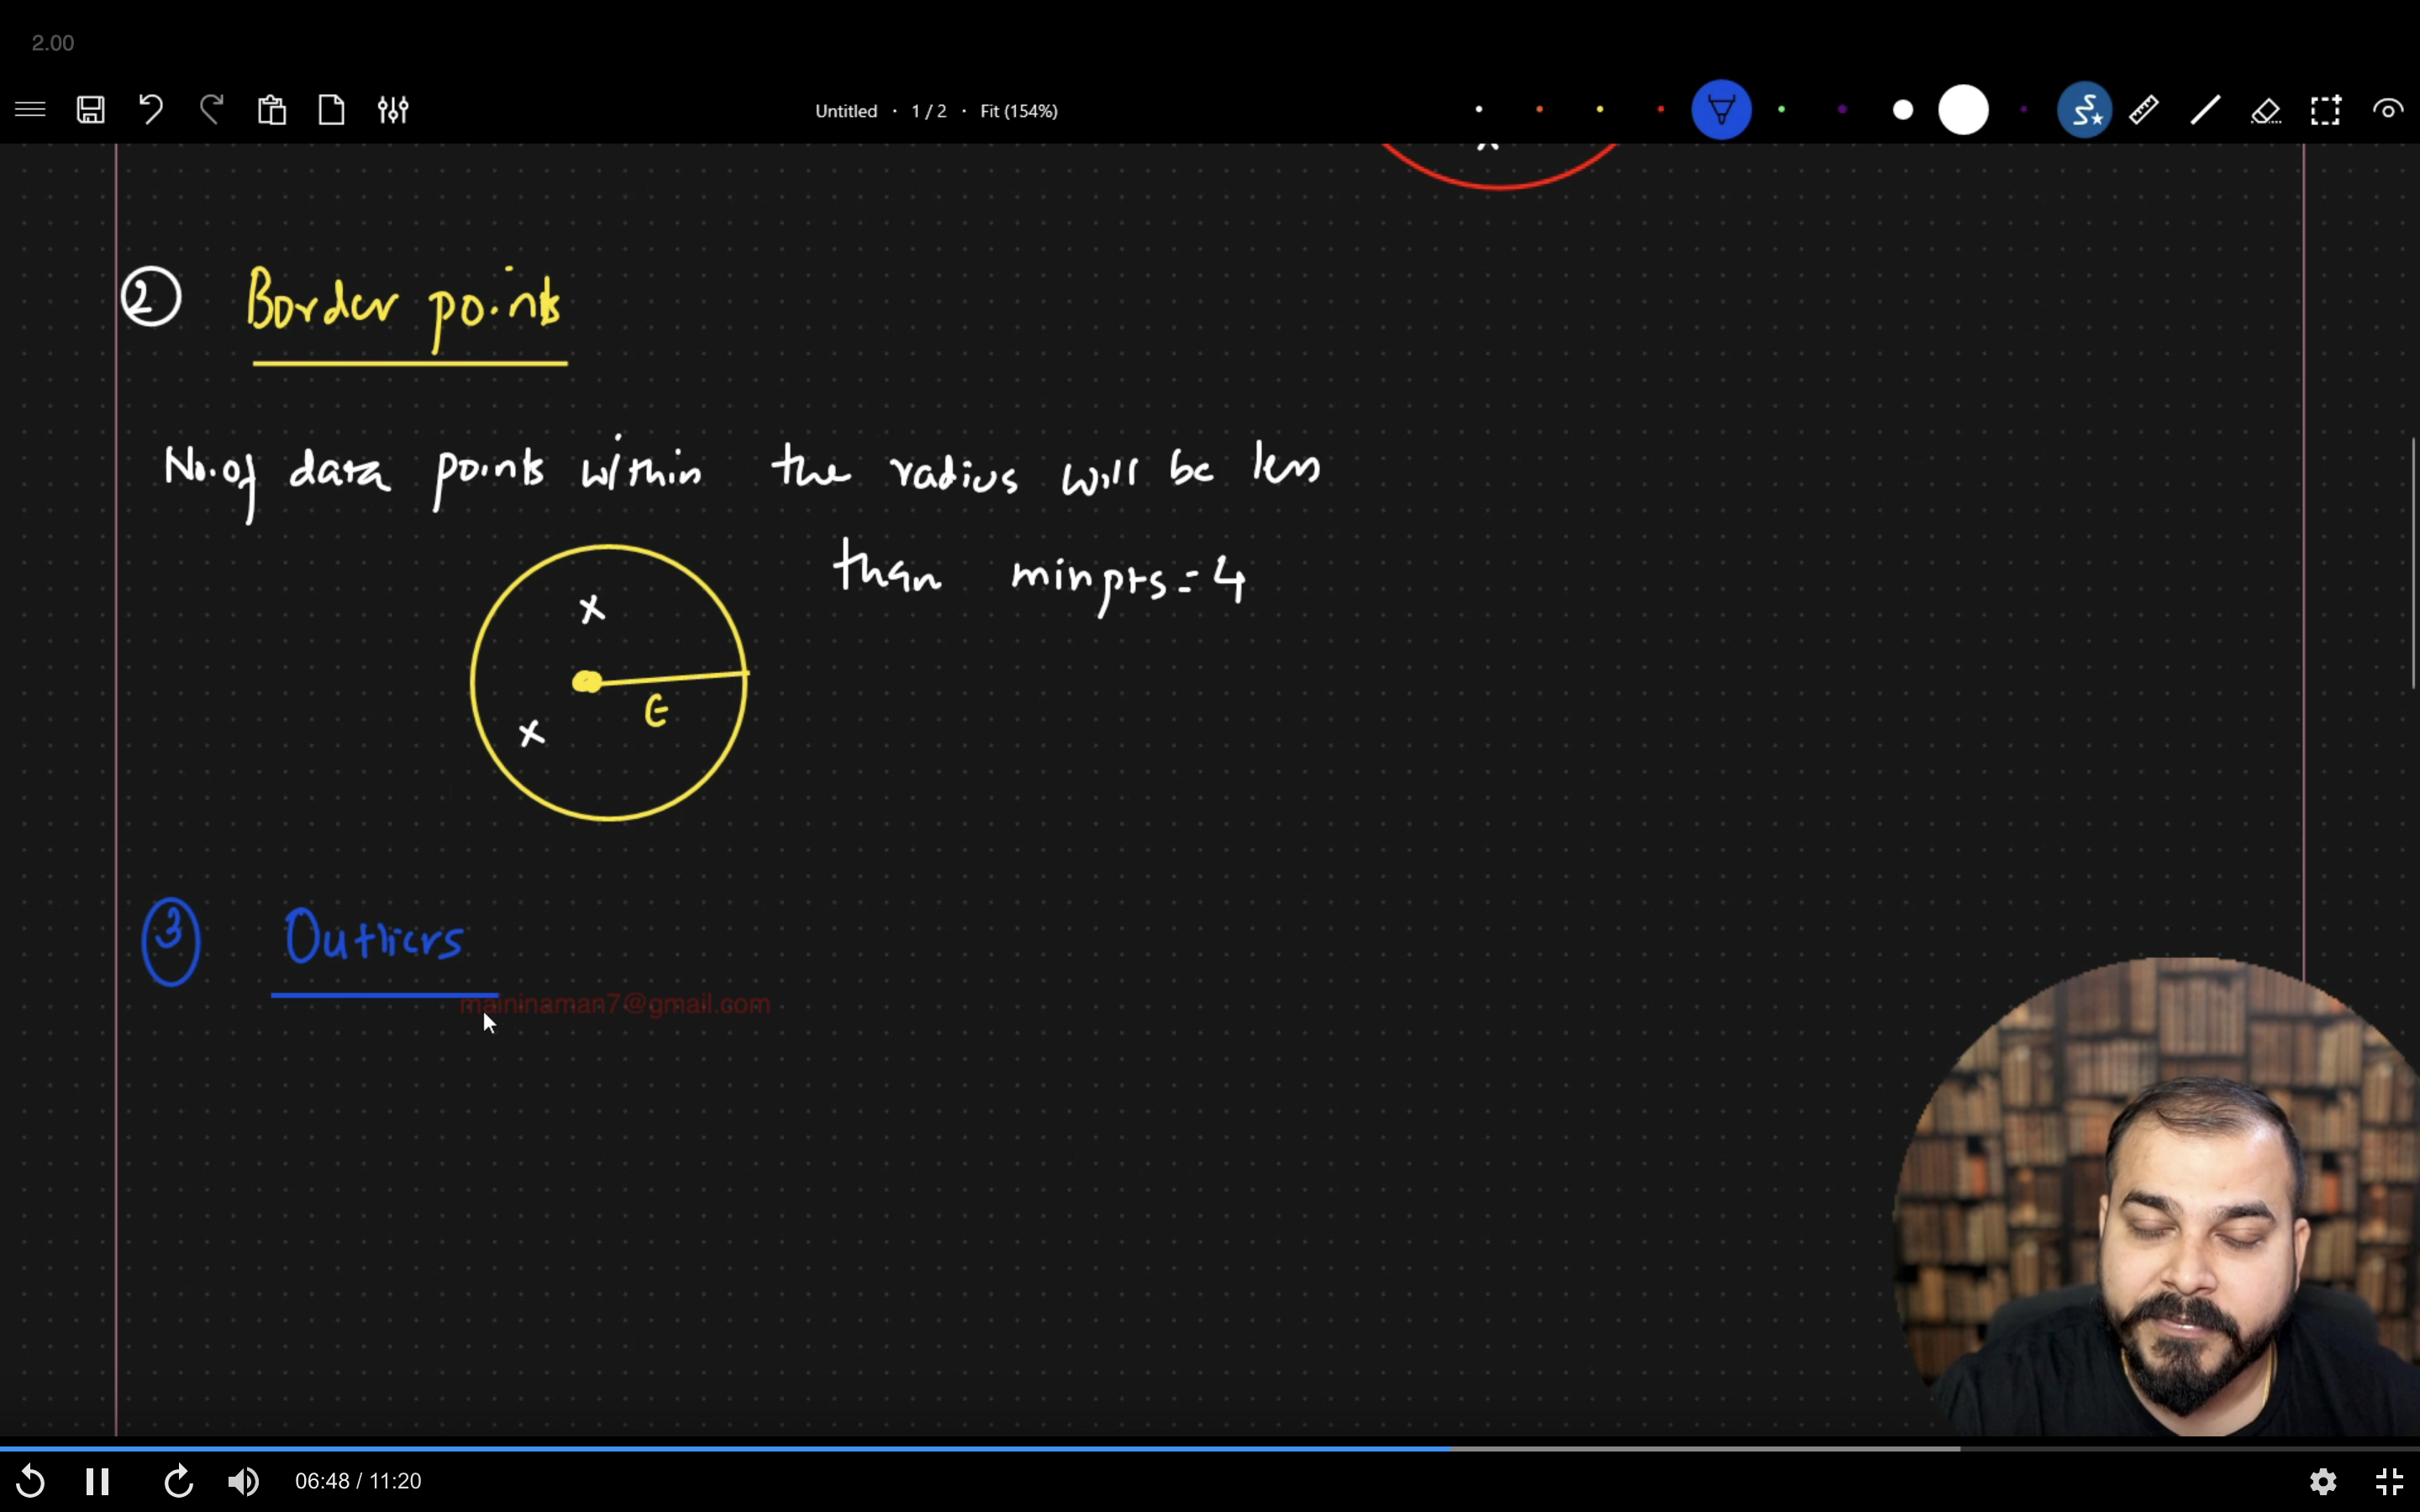 2.00
Untitled · 1 / 2 · Fit (154%)
2 Border points
No. of data points within the radius will be less
than minpts = 4
x
E
x
3 Outliers
maininaman7@gmail.com
06:48 / 11:20